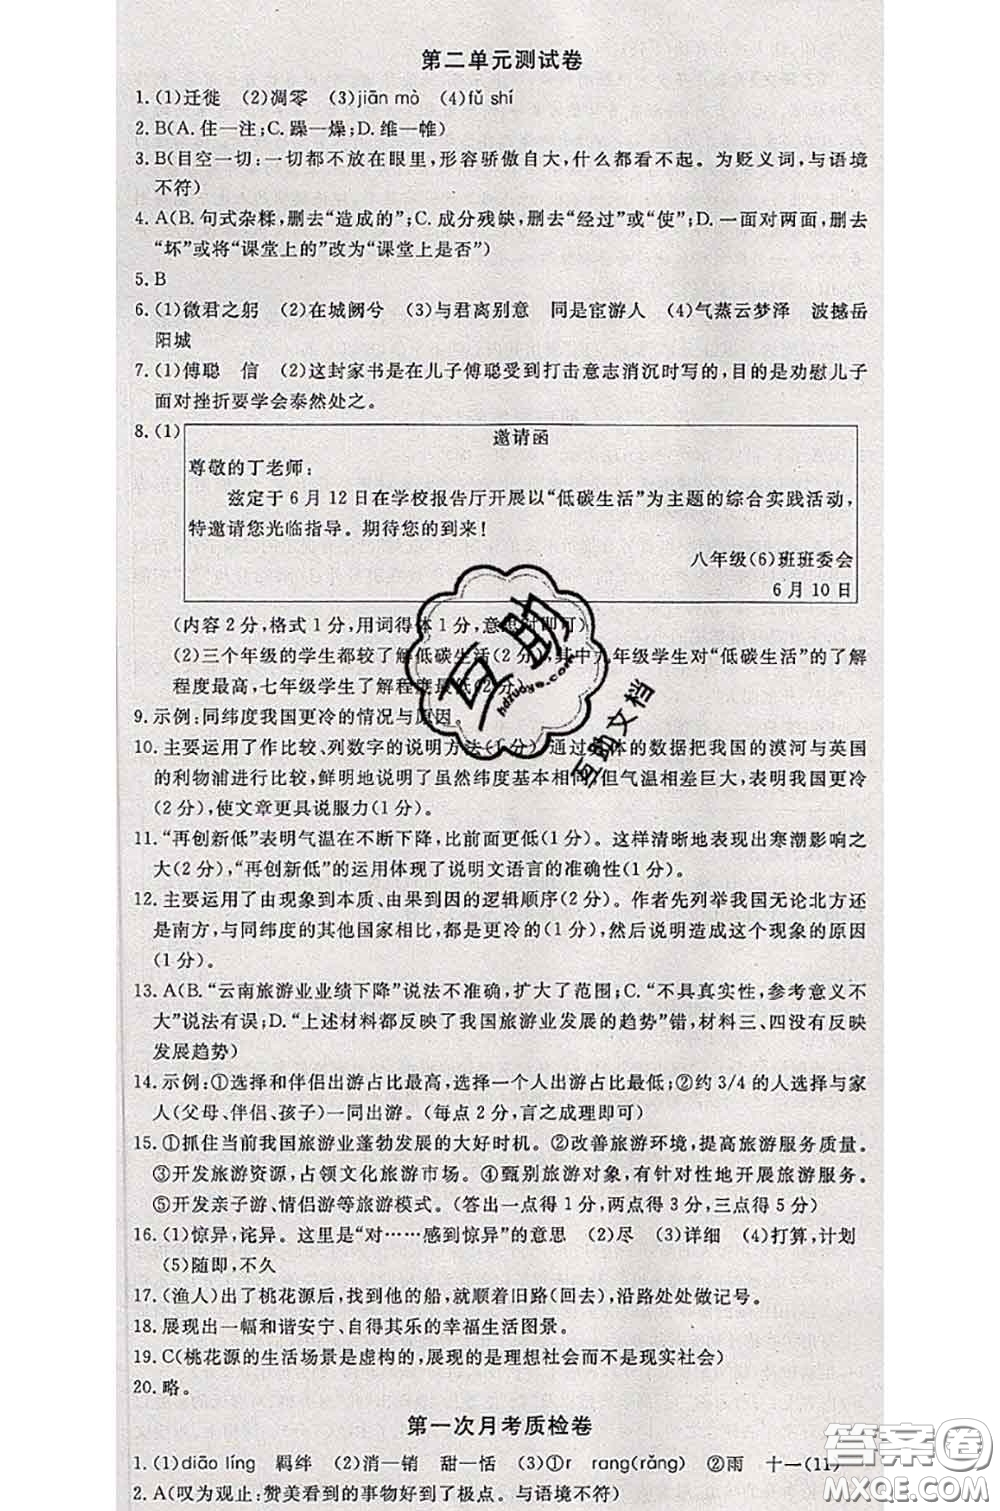 第二单元测试卷
1. (1)迁徙 (2)凋零 (3)jiān mò (4)fǔ shí
2. B(A. 住—注;C. 躁—燥;D. 维—帷)
3. B(目空一切:一切都不放在眼里,形容骄傲自大,什么都看不起。为贬义词,与语境
不符)
4. A(B. 句式杂糅,删去“造成的”;C. 成分残缺,删去“经过”或“使”;D. 一面对两面,删去
“坏”或将“课堂上的”改为“课堂上是否”)
5. B
6. (1)微君之躬 (2)在城阙兮 (3)与君离别意 同是宦游人 (4)气蒸云梦泽 波撼岳
阳城
7. (1)傅聪 信 (2)这封家书是在儿子傅聪受到打击意志消沉时写的,目的是劝慰儿子
面对挫折要学会泰然处之。
8. (1)
邀请函
尊敬的丁老师:
兹定于 6 月 12 日在学校报告厅开展以“低碳生活”为主题的综合实践活动,
特邀请您光临指导。期待您的到来!
八年级(6)班班委会
6 月 10 日
(内容 2 分,格式 1 分,用词得体 1 分,意思对即可)
(2)三个年级的学生都较了解低碳生活(2 分),其中九年级学生对“低碳生活”的了解
程度最高,七年级学生了解程度最低(2 分)
9. 示例:同纬度我国更冷的情况与原因。
10. 主要运用了作比较、列数字的说明方法(1 分) 通过具体的数据把我国的漠河与英国
的利物浦进行比较,鲜明地说明了虽然纬度基本相同,但气温相差巨大,表明我国更冷
(2 分),使文章更具说服力(1 分)。
11. “再创新低”表明气温在不断下降,比前面更低(1 分)。这样清晰地表现出寒潮影响之
大(2 分),“再创新低”的运用体现了说明文语言的准确性(1 分)。
12. 主要运用了由现象到本质、由果到因的逻辑顺序(2 分)。作者先列举我国无论北方还
是南方,与同纬度的其他国家相比,都是更冷的(1 分),然后说明造成这个现象的原因
(1 分)。
13. A(B. “云南旅游业业绩下降”说法不准确,扩大了范围;C. “不具真实性,参考意义不
大”说法有误;D. “上述材料都反映了我国旅游业发展的趋势”错,材料三、四没有反映
发展趋势)
14. 示例:①选择和伴侣出游占比最高,选择一个人出游占比最低;②约 3/4 的人选择与家
人(父母、伴侣、孩子)一同出游。(每点 2 分,言之成理即可)
15. ①抓住当前我国旅游业蓬勃发展的大好时机。②改善旅游环境,提高旅游服务质量。
③开发旅游资源,占领文化旅游市场。④甄别旅游对象,有针对性地开展旅游服务。
⑤开发亲子游、情侣游等旅游模式。(答出一点得 1 分,两点得 3 分,三点得 5 分)
16. (1)惊异,诧异。这里是“对……感到惊异”的意思 (2)尽 (3)详细 (4)打算,计划
(5)随即,不久
17. (渔人)出了桃花源后,找到他的船,就顺着旧路(回去),沿路处处做记号。
18. 展现出一幅和谐安宁、自得其乐的幸福生活图景。
19. C(桃花源的生活场景是虚构的,展现的是理想社会而不是现实社会)
20. 略。
第一次月考质检卷
1. (1)diāo líng 羁绊 (2)消—销 甜—恬 (3)①r rang(rǎng) ②雨 十一(11)
2. A(叹为观止:赞美看到的事物好到了极点。与语境不符)
互助
hdzuoye.com
互助文档
答案圈
MXQE.COM